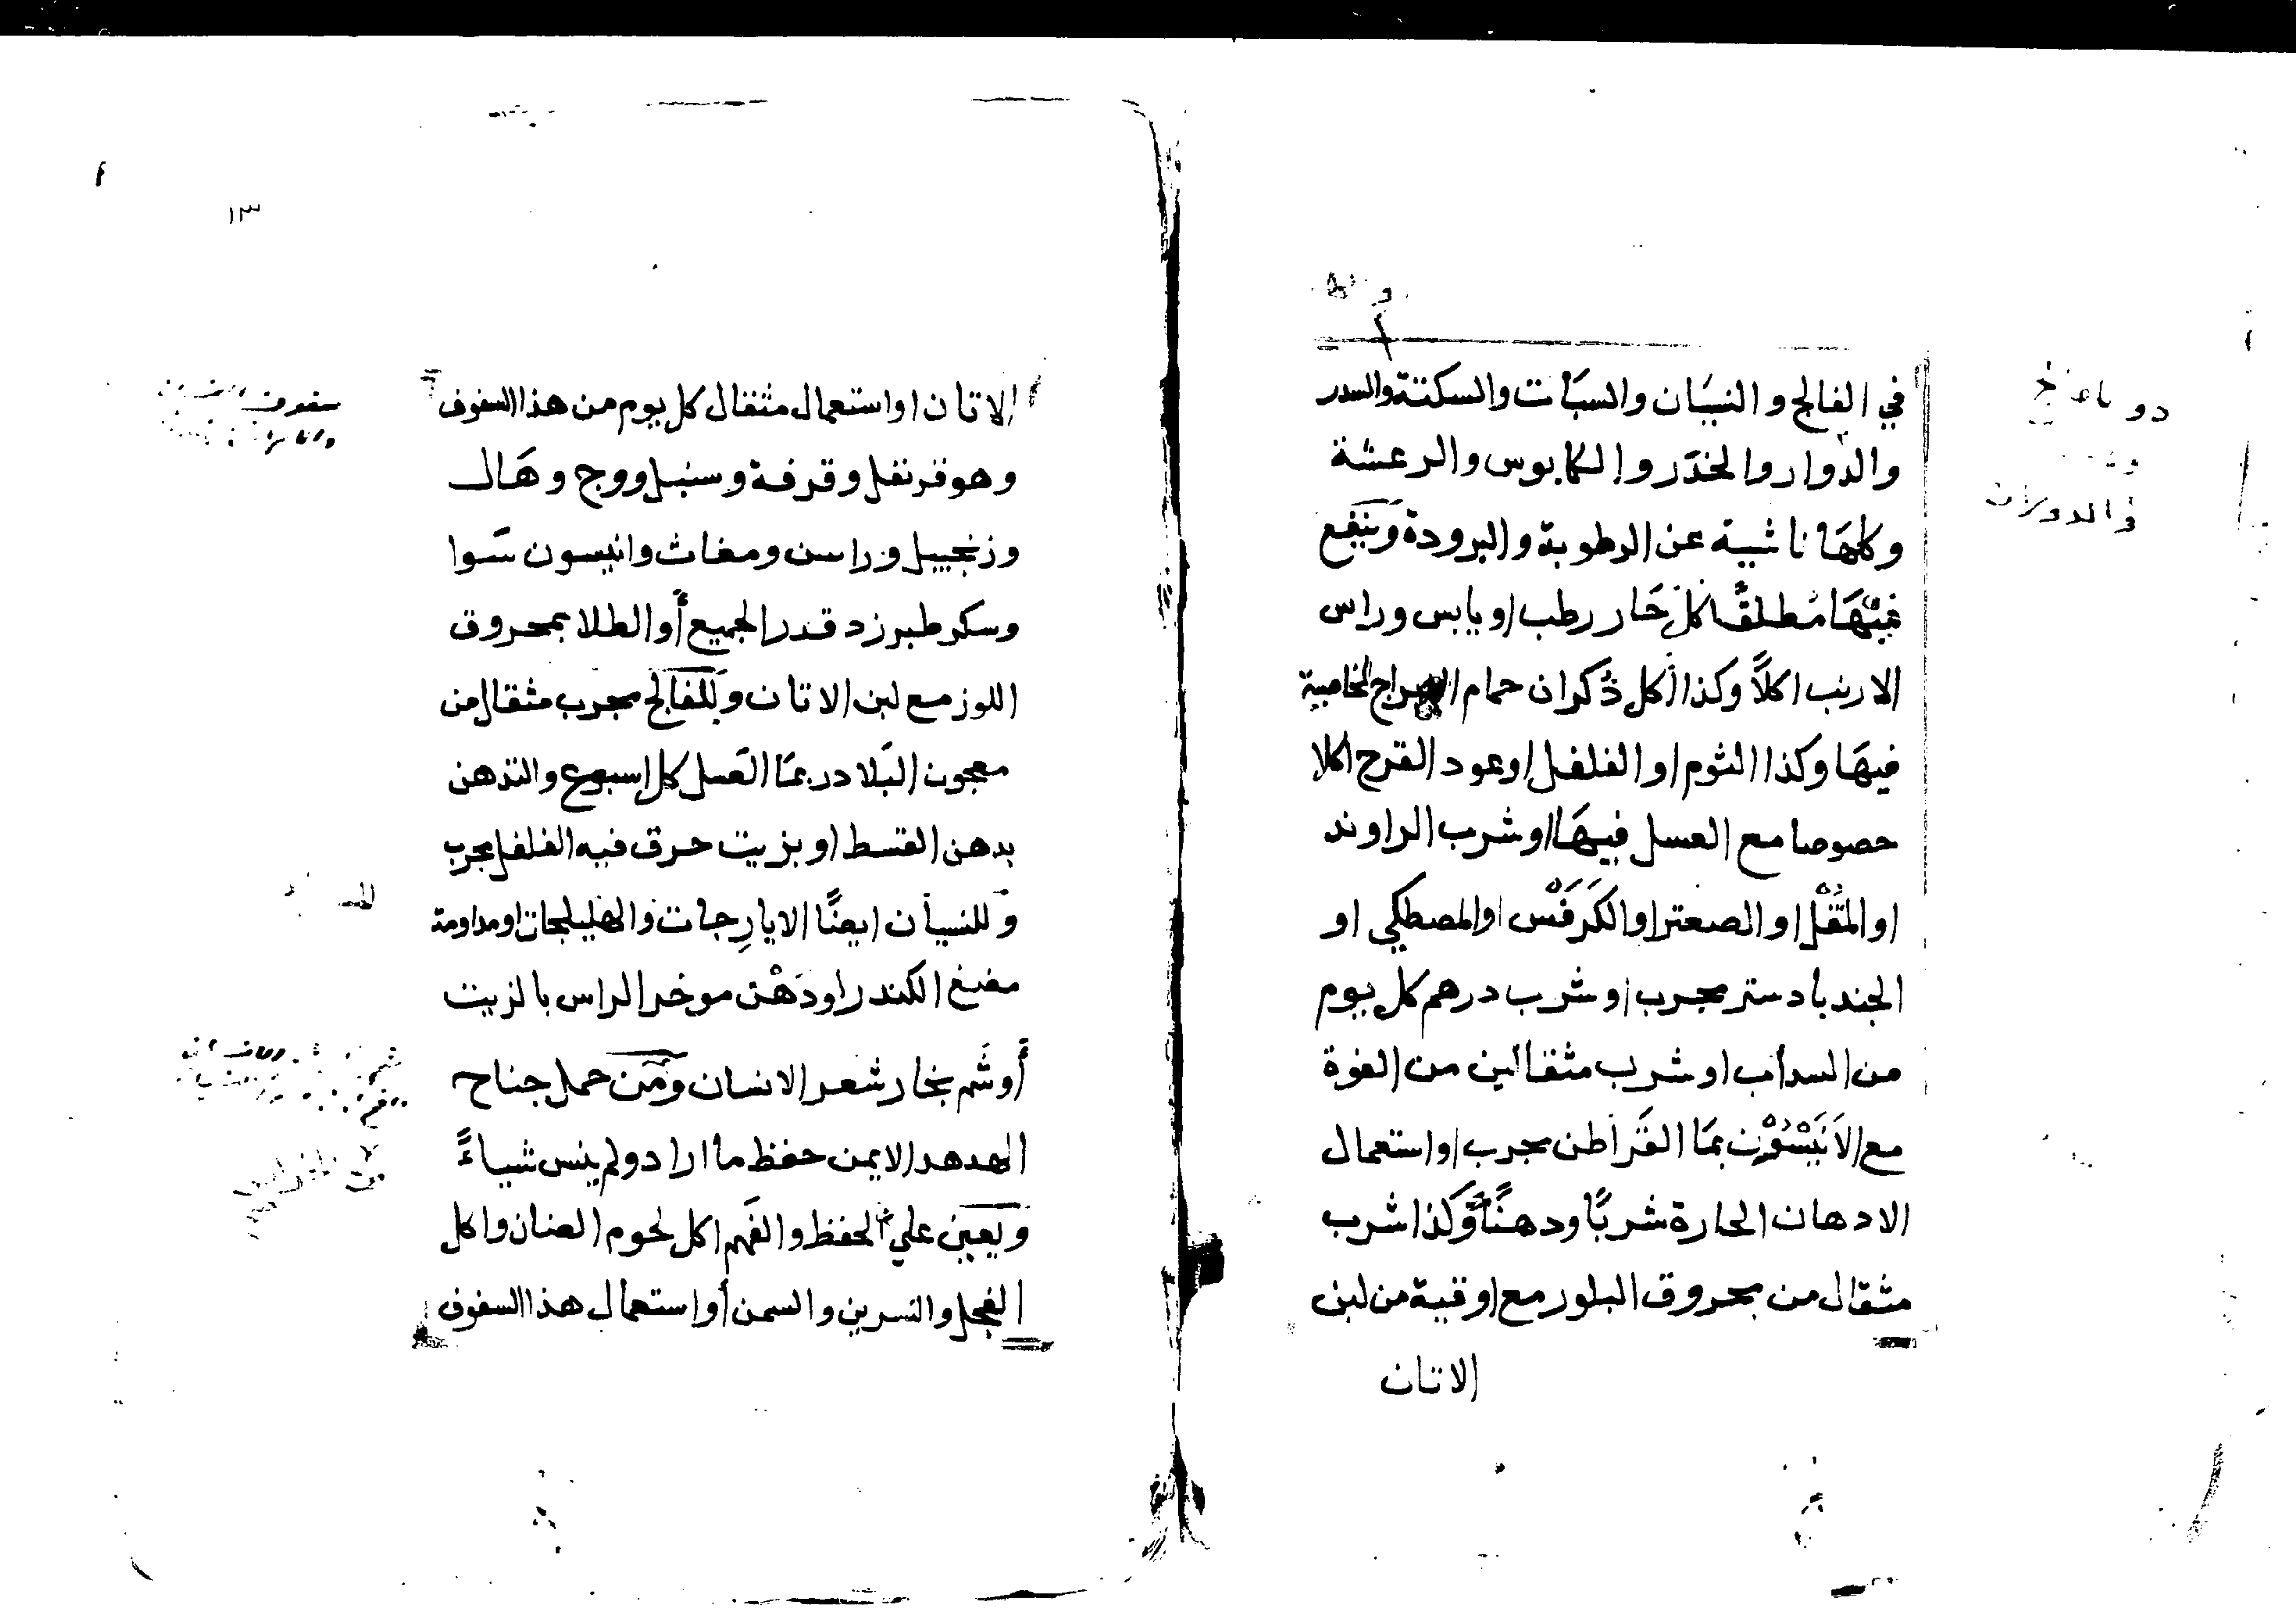 في الفالج والنسيَان والسبَات والسكتة والسدر
والدوار والخدَر والكابوس والرعشة
وكلهَا ناشية عن الرطوبة والبرودة وَينفع
مُطلقًا كل حَار رطب او يابس وراس
الارنب اكلًا وكذا أكل ذُكران حمام لخاصية
فيهَا وكذا الثوم او الفلفل او عود القرح اكلا
خصوصا مع العسل فيهَا او شرب الراوند
او المُقْل او الصعتر او الكَرَفْس او المصطكي او
الجندبادستر مجرب او شرب درهم كل يوم
من السداب او شرب مثقالين من الفوة
مع الاَنَيْسُوْن بمَا القَراطن مجرب او استعمال
الادهان الحارة شربًا ودهنًا وَكذا شرب
مثقال من محروق البلور مع اوقية من لبن
الاتان
١٣
الاتان او استعمال مثقال كل يوم من هذا السفوف
وهو قرنفل وقرفة وسنبل ووج وهَال
وزنجبيل وراسن ومغاث وانيسون سَوا
وسكر طبرزد قدر الجميع أو الطلا بمحروق
اللوز مع لبن الاتان وَللفالج مجرب مثقال من
معجون البَلادر بمَا العَسل كل اسبوع والتدهن
بدهن القسط او بزيت حرق فيه الفلفل مجرب
وَللنسيان ايضًا الايارِجات والهليلجات او مداومة
مضغ الكندر او دَهْن موخر الراس بالزيت
أو شَم بخار شعر الانسان وَمَن حمل جناح
الهدهد الايمن حفظ ما اراد ولم ينس شياءً
وَيعين علي الحفظ والفَهم اكل لحوم الضان واكل
الفجل والنسرين والسمن أو استعمال هذا السفوف
سفوف